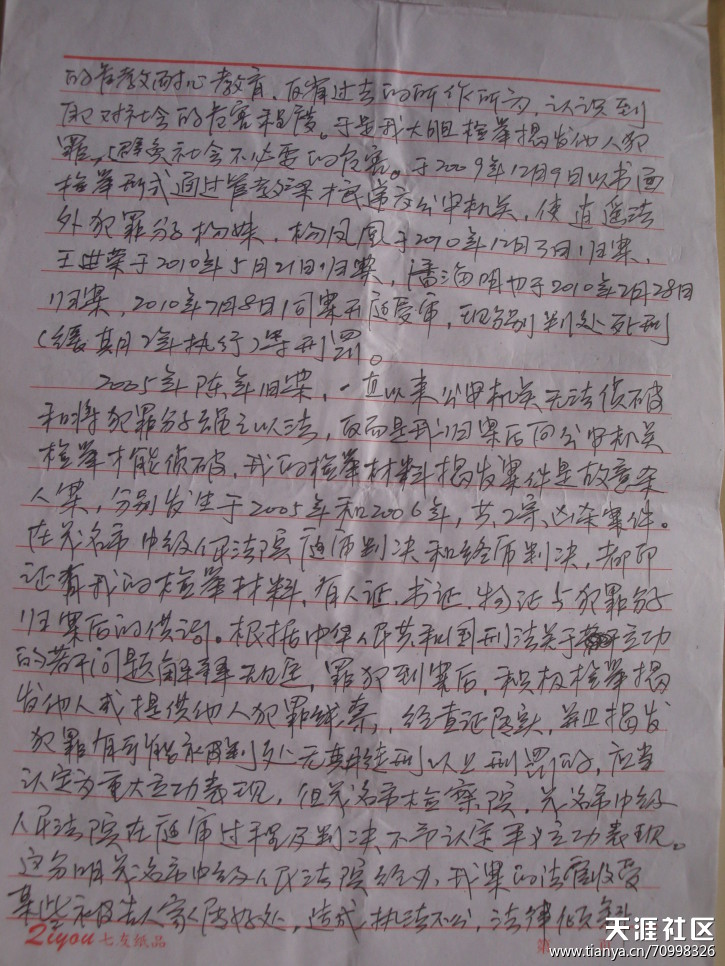 的管教耐心教育，反省过去的所作所为，认识到
犯对社会的危害程度。于是我大胆检举揭发他人犯
罪，避免社会不必要的危害。于2009年12月9日以书面
检举形式通过管教梁 递交公审机关，使逍遥法
外犯罪分子杨妹，杨凤凰于2010年12月3日归案，
王世荣于2010年5月21日归案，潘海明也于2010年2月28日
归案，2010年7月8日同案开庭受审，现分别判处死刑
（缓期2年执行）等刑罚。
2005年陈年旧案，一直以来公审机关无法侦破
和将犯罪分子绳之以法，反而是我归案后向公审机关
检举才能侦破，我的检举材料揭发案件是故意杀
人案，分别发生于2005年和2006年，共2宗凶杀案件。
在茂名市中级人民法院庭审判决和终审判决，都印
证有我的检举材料，有人证，书证，物证与犯罪分子
归案后的供词。根据中华人民共和国刑法关于立功
的若干问题解释 ，罪犯到案后，积极检举揭
发他人或提供他人犯罪线索，经查证属实，并且揭发
犯罪有可能被判处无期徒刑以上刑罚的，应当
认定为重大立功表现，但茂名市检察院，茂名市中级
人民法院在庭审过程及判决不予认定 立功表现。
这分明茂名市中级人民法院经办我案的法官收受
某些被告人家属好处，造成执法不公，法律倾斜
Qiyou 七友纸品
第
天涯社区
www.tianya.cn/70998326